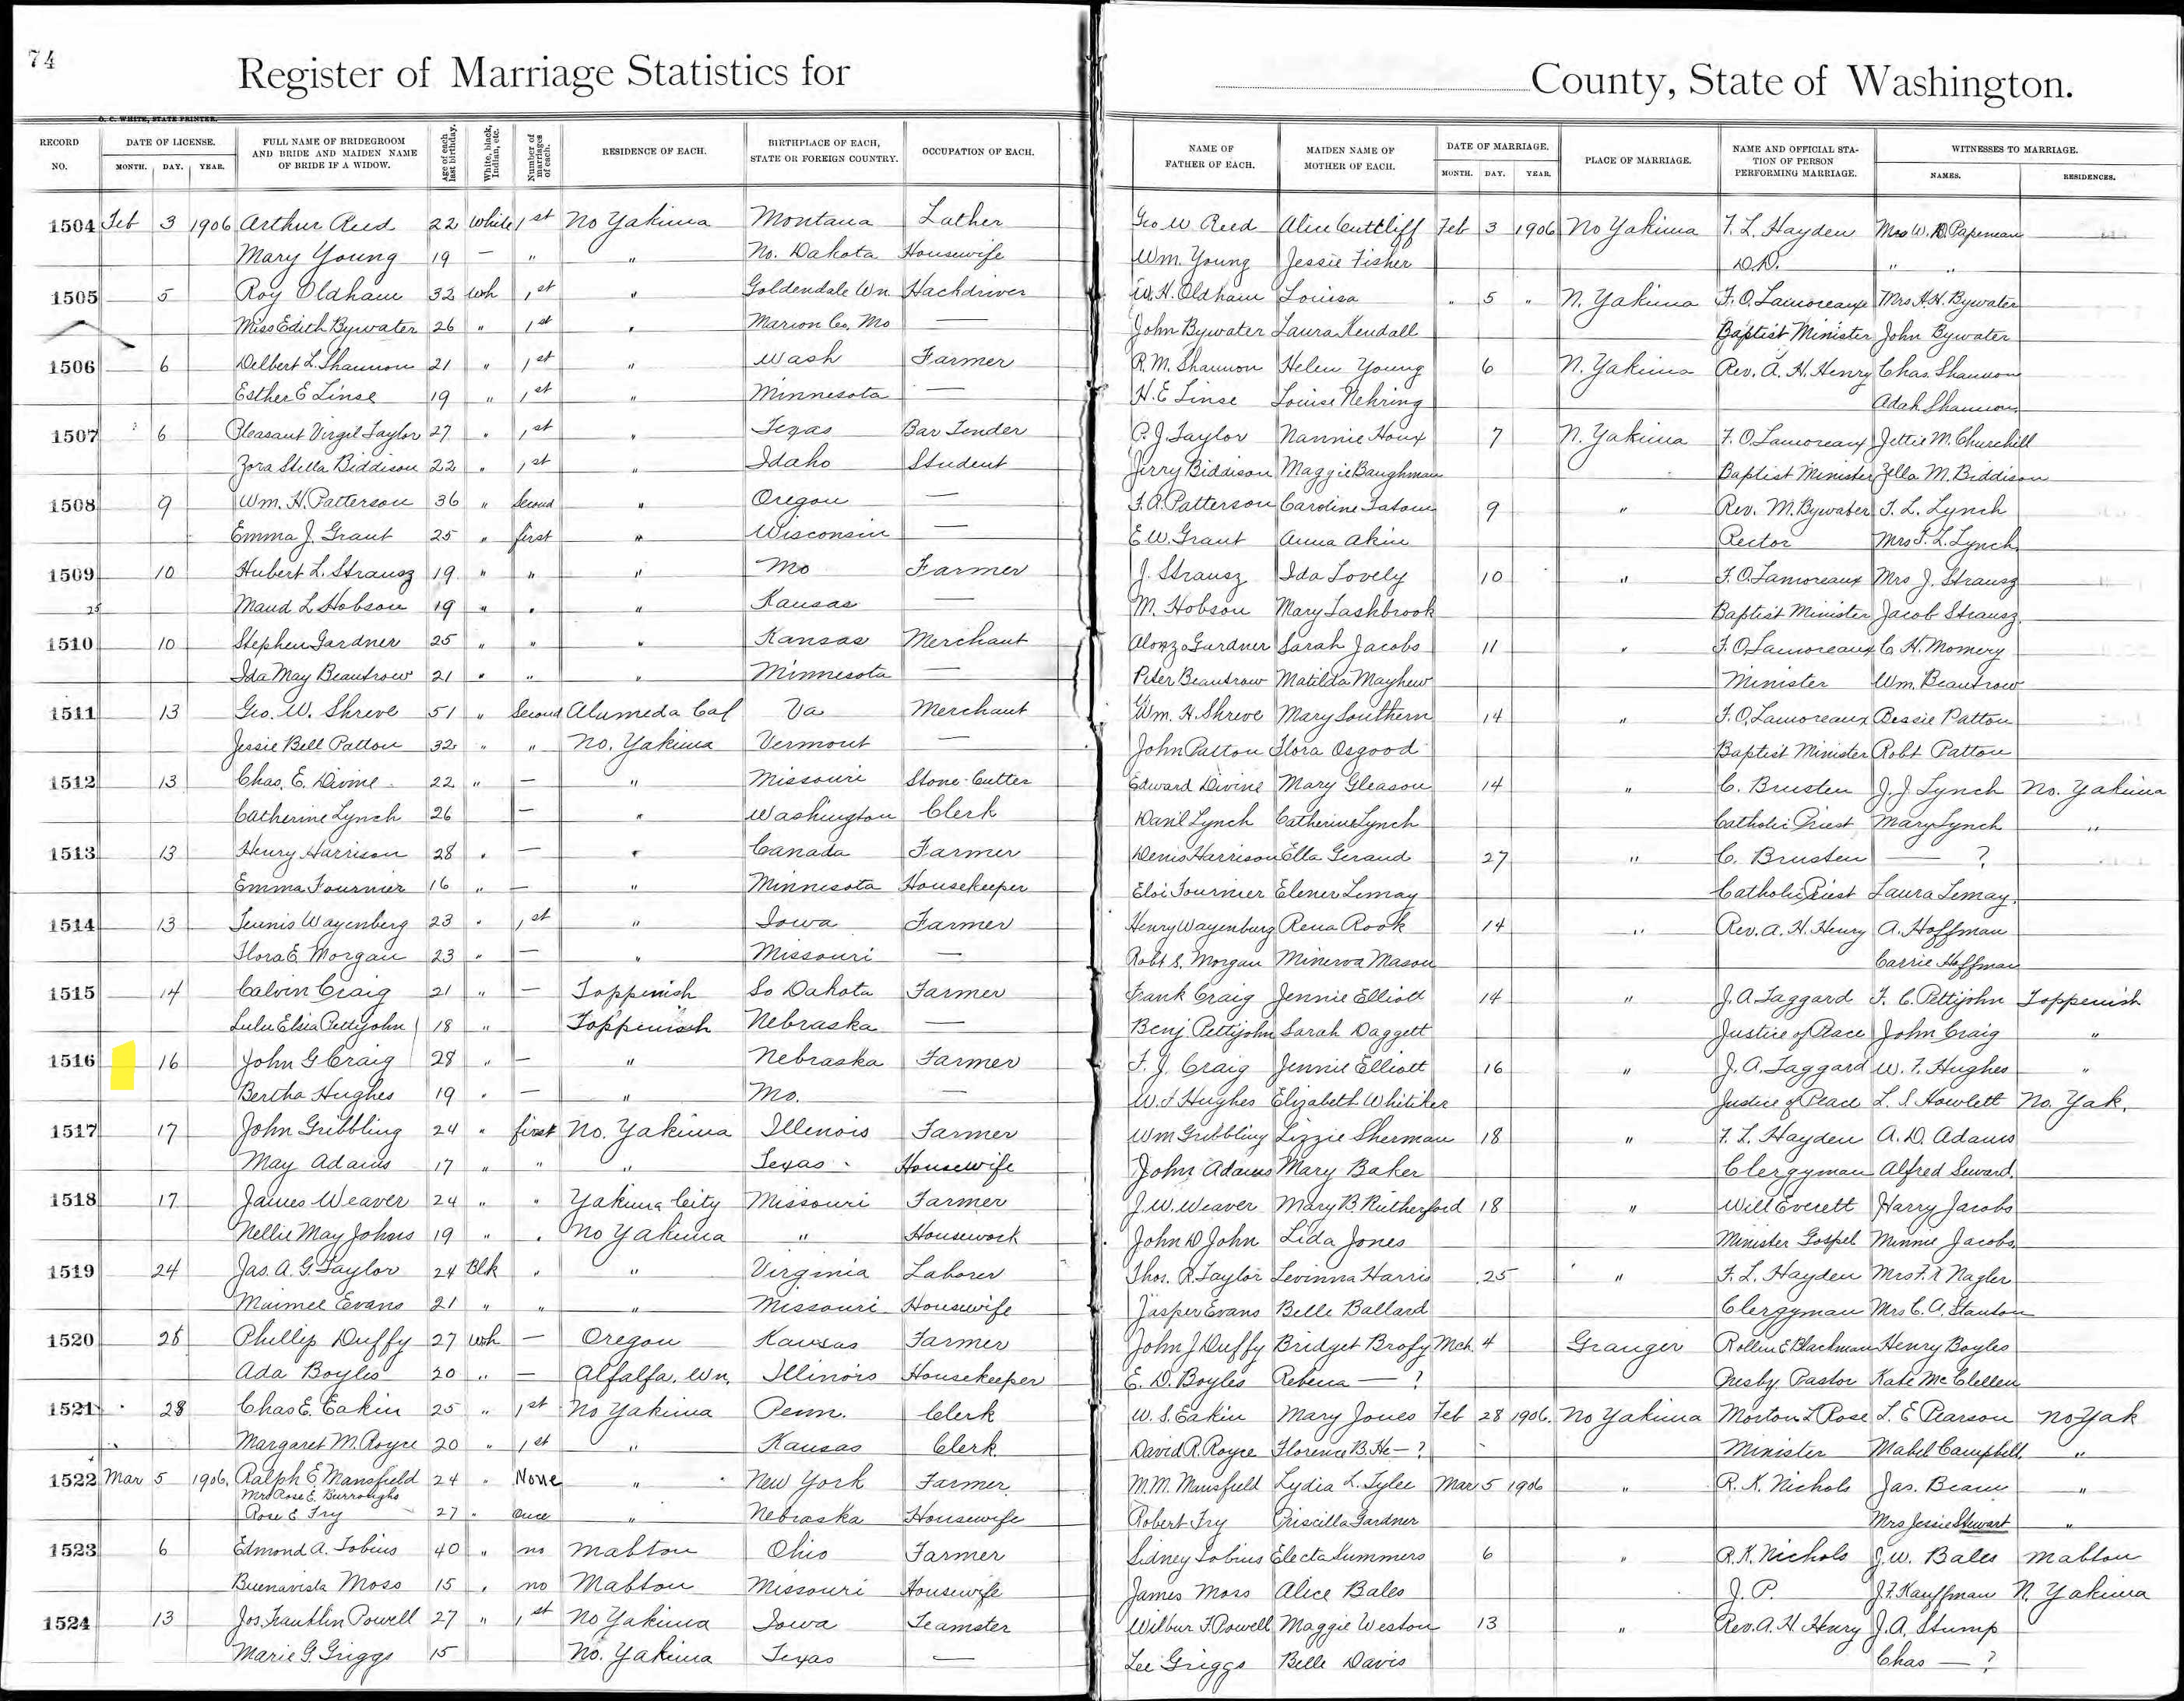 74
Register of Marriage Statistics for County, State of Washington.
O. C. WHITE, STATE PRINTER.
RECORD NO. DATE OF LICENSE. MONTH. DAY. YEAR. FULL NAME OF BRIDEGROOM AND BRIDE AND MAIDEN NAME OF BRIDE IF A WIDOW. Age of each last birthday. White, black, Indian, etc. Number of marriages of each. RESIDENCE OF EACH. BIRTHPLACE OF EACH, STATE OR FOREIGN COUNTRY. OCCUPATION OF EACH. NAME OF FATHER OF EACH. MAIDEN NAME OF MOTHER OF EACH. DATE OF MARRIAGE. MONTH. DAY. YEAR. PLACE OF MARRIAGE. NAME AND OFFICIAL STATION OF PERSON PERFORMING MARRIAGE. WITNESSES TO MARRIAGE. NAMES. RESIDENCES.
1504 Feb 3 1906 Arthur Reed 22 White 1st No Yakima Montana Lather Geo W Reed Alice Cuttcliff Feb 3 1906 No Yakima F. L. Hayden Mrs W. D. Papineau
Mary Young 19 — " " No. Dakota Housewife Wm. Young Jessie Fisher D.D. " "
1505 5 Roy Oldham 32 Wh 1st " Goldendale Wn. Hackdriver W. H. Oldham Louisa " 5 " N. Yakima F. O. Lamoreaux Mrs H. H. Bywater
Miss Edith Bywater 26 " 1st " Marion Co. Mo — John Bywater Laura Kendall Baptist Minister John Bywater
1506 6 Delbert L. Shannon 21 " 1st " Wash Farmer R. M. Shannon Helen Young 6 N. Yakima Rev. A. H. Henry Chas. Shannon
Esther E Linse 19 " 1st " Minnesota — H. E Linse Louise Nehring Adah Shannon
1507 6 Pleasant Virgil Taylor 27 " 1st " Texas Bar Tender P. J. Taylor Nannie Houx 7 N. Yakima F. O Lamoreaux Jettie M. Churchill
Zora Stella Biddison 22 " 1st " Idaho Student Jerry Biddison Maggie Baughman Baptist Minister Zella M. Biddison
1508 9 Wm. H. Patterson 36 " Second " Oregon — F. A. Patterson Caroline Tatom 9 " Rev. M. Bywater T. L. Lynch
Emma J. Grant 25 " first " Wisconsin — E W. Grant Anna Akin Rector Mrs T. L. Lynch
1509 10 Hubert L. Strausz 19 " " " Mo Farmer J. Strausz Ida Lovely 10 " F. O. Lamoreaux Mrs J. Strausz
Maud L Hobson 19 " " " Kansas — M. Hobson Mary Lashbrook Baptist Minister Jacob Strausz
1510 10 Stephen Gardner 25 " " " Kansas Merchant Alonzo Gardner Sarah Jacobs 11 " F. O Lamoreaux C. H. Momery
Ida May Beautrow 21 " " " Minnesota — Peter Beautrow Matilda Mayhew Minister Wm. Beautrow
1511 13 Geo. W. Shreve 51 " Second Alameda Cal Va Merchant Wm. H. Shreve Mary Southern 14 " F. O. Lamoreaux Bessie Patton
Jessie Bell Patton 32 " " No. Yakima Vermont — John Patton Flora Osgood Baptist Minister Robt Patton
1512 13 Chas. E. Divine 22 " — " Missouri Stone-Cutter Edward Divine Mary Gleason 14 " C. Brusten J. J. Lynch No. Yakima
Catherine Lynch 26 — " Washington Clerk Danil Lynch Catherine Lynch Catholic Priest Mary Lynch "
1513 13 Henry Harrison 28 " — " Canada Farmer Denis Harrison Ella Geraud 27 " C. Brusten — ?
Emma Fournier 16 " — " Minnesota Housekeeper Eloi Fournier Elener Lemay Catholic Priest Laura Lemay
1514 13 Teunis Wayenberg 23 " 1st " Iowa Farmer Henry Wayenburg Rena Rook 14 " Rev. A. H. Henry A. Hoffman
Flora E. Morgan 23 " — " Missouri — Robt S. Morgan Minerva Mason Carrie Hoffman
1515 14 Calvin Craig 21 " — Toppenish So Dakota Farmer Frank Craig Jennie Elliott 14 " J. A. Taggard F. C. Pettijohn Toppenish
Lulu Elsia Pettijohn 18 " Toppenish Nebraska — Benj. Pettijohn Sarah Daggett Justice of Peace John Craig "
1516 16 John G Craig 28 " — " Nebraska Farmer F. J. Craig Jennie Elliott 16 " J. A. Taggard W. F. Hughes "
Bertha Hughes 19 " — " Mo. — W. F Hughes Elizabeth Whitiker Justice of Peace L. S. Howlett No. Yak.
1517 17 John Gribbling 24 " first No. Yakima Illenois Farmer Wm Gribbling Lizzie Sherman 18 " F. L. Hayden A. D. Adams
May Adams 17 " " " Texas Housewife John Adams Mary Baker Clergyman Alfred Seward
1518 17 James Weaver 24 " " Yakima City Missouri Farmer J. W. Weaver Mary B. Rutherford 18 " Will Everett Harry Jacobs
Nellie May Johns 19 " " No Yakima " Housework John D John Lida Jones Minister Gospel Minnie Jacobs
1519 24 Jas. A. G. Taylor 24 Blk " " Virginia Laborer Thos. R. Taylor Levinna Harris 25 " F. L. Hayden Mrs F. X Nagler
Maimee Evans 21 " " " Missouri Housewife Jasper Evans Belle Ballard Clergyman Mrs C. A. Stanton
1520 28 Phillip Duffy 27 Wh — Oregon Kansas Farmer John J Duffy Bridget Brofy Mch. 4 Granger Rollin E Blackman Henry Boyles
Ada Boyles 20 " — Alfalfa, Wn. Illinois Housekeeper E. D. Boyles Rebena — ? Presby. Pastor Kate McClellen
1521 28 Chas E. Eakin 25 " 1st No Yakima Penn. Clerk W. S. Eakin Mary Jones Feb 28 1906. No Yakima Morton L Rose L. E Pearson No Yak
Margaret M. Royce 20 " 1st " Kansas Clerk David R. Royce Florence B. He—? Minister Mabel Campbell "
1522 Mar 5 1906. Ralph E Mansfield 24 " None " New York Farmer M. M. Mansfield Lydia L. Tylee Mar 5 1906 " R. K. Nichols Jas. Beam "
Mrs Rose E. Burroughs
Rose E Fry 27 " Once " Nebraska Housewife Robert Fry Priscilla Gardner Mrs Jessie Stewart "
1523 6 Edmond A. Tobius 40 " no Mabton Ohio Farmer Sidney Tobius Electa Summers 6 " R. K. Nichols J. W. Bales Mabton
Buenavista Moss 15 " no Mabton Missouri Housewife James Moss Alice Bales J. P. J. F. Kauffman N. Yakima
1524 13 Jos. Franklin Powell 27 " 1st No Yakima Iowa Teamster Wilbur F. Powell Maggie Weston 13 " Rev. A. H. Henry J. A. Stump
Marie G. Griggs 15 No. Yakima Texas — Lee Griggs Belle Davis Chas — ?